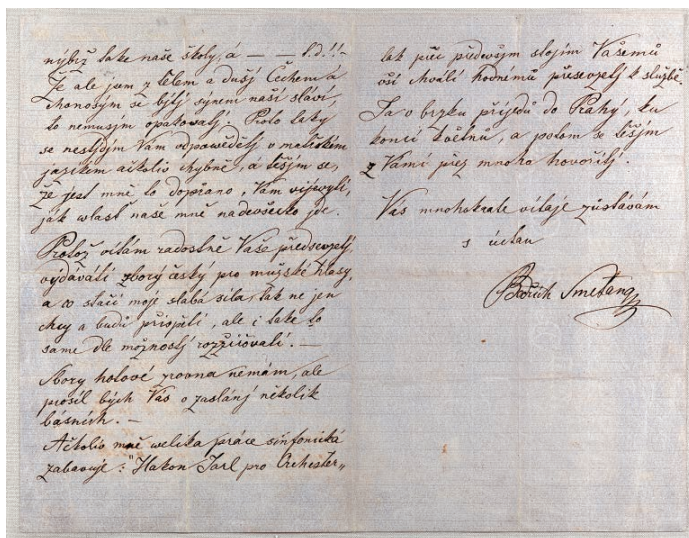 nýbrž take naše školy, á — — t.d.!!-
Že ale jsem z tělem a dušj Čechem á
honosým se býtj synem naší sláví,
to nemusjm opakovatj. Poto taky
se nestydjm Vam odpovědětj v mateřském
jazíkem ačkoliv chybně, á těšjm se,
že jest mně to dopřáno, Vam
ják wlast naše mně nadewšecko jde.
Protož vítám radostně Vaše předsevzetj
vydávátí zborý český pro mužské hlasy,
a co stačí moje slabá síla, tak ne jen
chcy a budu přispětí, ale i take to
same dle možnostj rozšiřovatí. —
Sbory hotové zrovna nemám, ale
prosil bých Vás o zaslánj několik
básních. —
Ačkoliv mně welika práce sinfonická
zabavuje: "Hakon Jarl pro Orchester„
tak předewšjm stojjm Vašemů
chválí hodnému předsevzetj k službě.
Ja v brzku příjedů do Prahý, ku
koncí květnů, a potom se těšjm
z Vámí přez mnoho hovořitj.
Vás mnohokrate vítaje zůstávám
s úctau
Bedřich Smetana